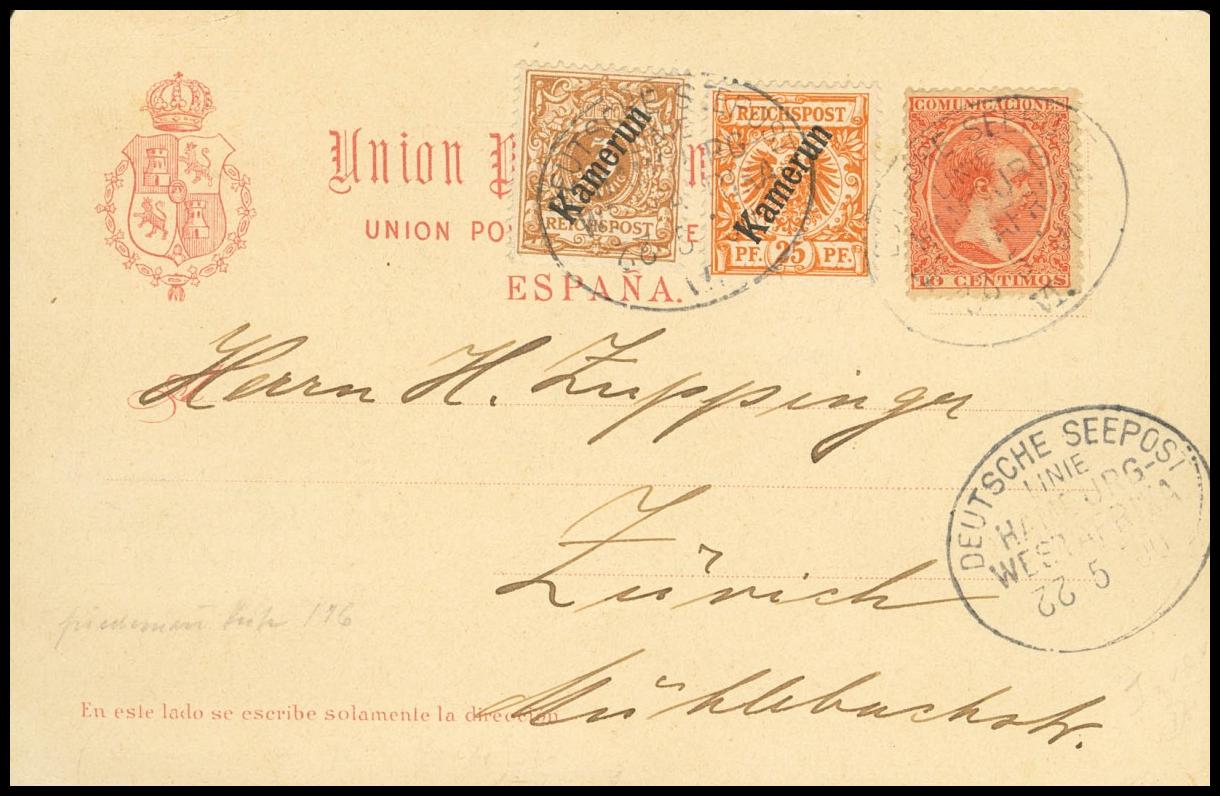 Union P
UNION PO E
ESPAÑA.
Kamerun
REICHSPOST
REICHSPOST
Kamerun
PF. 25 PF.
COMUNICACIONES
10 CENTIMOS
Herrn H. Zuppinger
Zürich
Mühlebachstr.
DEUTSCHE SEEPOST
LINIE
HAMBURG-
WESTAFRIKA
22 5
En este lado se escribe solamente la dirección